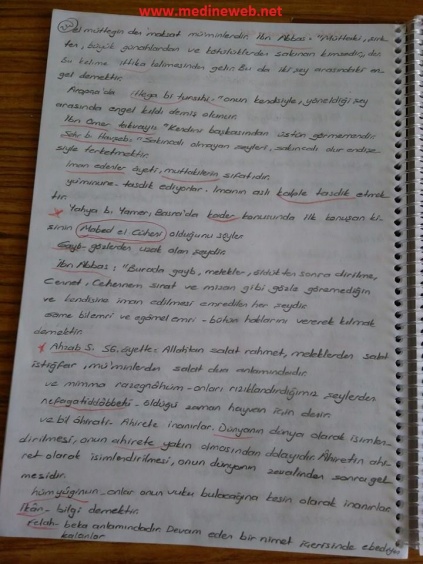 www.medineweb.net
el müttegin den maksat müminlerdir. İbn Abbas: "Müttaki, şirk-
ten, büyük günahlardan ve kötülüklerden sakınan kimsedir, der.
Bu kelime ittika kelimesinden gelir. Bu da iki şey arasındaki en-
gel demektir.
Arapça'da itteqa bi tursihi - "onun kendisiyle, yöneldiği şey
arasında engel kıldı demiş olunur.
İbn Ömer takvayı; "Kendini başkasından üstün görmemendir
Şehr b. Havşeb: "Sakıncalı olmayan şeyleri, sakıncalı olur endişe-
siyle terketmektir.
İman edenler ayeti, muttakilerin sıfatıdır.
yü'minune - tasdik ediyorlar. İmanın aslı kalple tasdik etmek
tir.
Yahya b. Yamer; Basra'da kader konusunda ilk konuşan ki-
sinin Mabed el Cüheni olduğunu söyler.
Gayb - gözlerden uzak olan şeydir.
İbn Abbas: "Burada gayb, melekler, öldükten sonra dirilme,
Cennet, Cehennem sırat ve mizan gibi gözle göremediğin
ve kendisine iman edilmesi emredilen her şeydir.
bütün haklarını vererek kılmak
demektir.
Ahzab S. 56. ayette: Allahtan salat rahmet, meleklerden salat
istiğfar, mü'minlerden salat dua anlamındadır.
ve mimma razegnahüm - onları rızıklandırdığımız şeylerden
öldüğü zaman hayvan için denir.
ve bil ahirati - Ahirete inanırlar. Dünyanın dünya olarak isimlen-
dirilmesi, onun ahirete yakın olmasından dolayıdır. Ahiretin ahi-
ret olarak isimlendirilmesi, onun dünyanın zevalinden sonra gel
mesidir.
hüm yüginun - onlar onun vuku bulacağına kesin olarak inanırlar
İkân - bilgi demektir.
Felah - beka anlamındadır. Devam eden bir nimet içerisinde ebedi
kalanlar